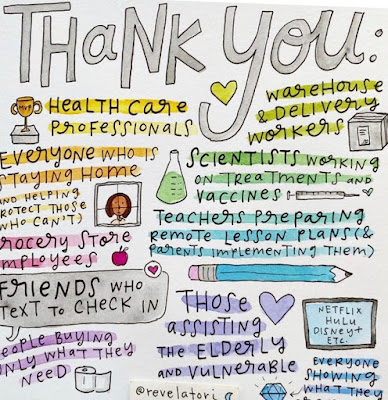 THANK YOU:
MVP
HEALTHCARE
PROFESSIONALS
WAREHOUSE
& DELIVERY
WORKERS
EVERYONE WHO IS
STAYING HOME
AND HELPING
PROTECT THOSE
WHO CAN'T)
SCIENTISTS WORKING
ON TREATMENTS AND
VACCINES
TEACHERS PREPARING
REMOTE LESSON PLANS (&
PARENTS IMPLEMENTING THEM)
GROCERY STORE
EMPLOYEES
FRIENDS WHO
TEXT TO CHECK IN
THOSE
ASSISTING
THE ELDERLY
AND VULNERABLE
NETFLIX
HULU
DISNEY+
ETC.
PEOPLE BUYING
ONLY WHAT THEY
NEED
EVERYONE
SHOWING
WHAT THEY
@revelatori